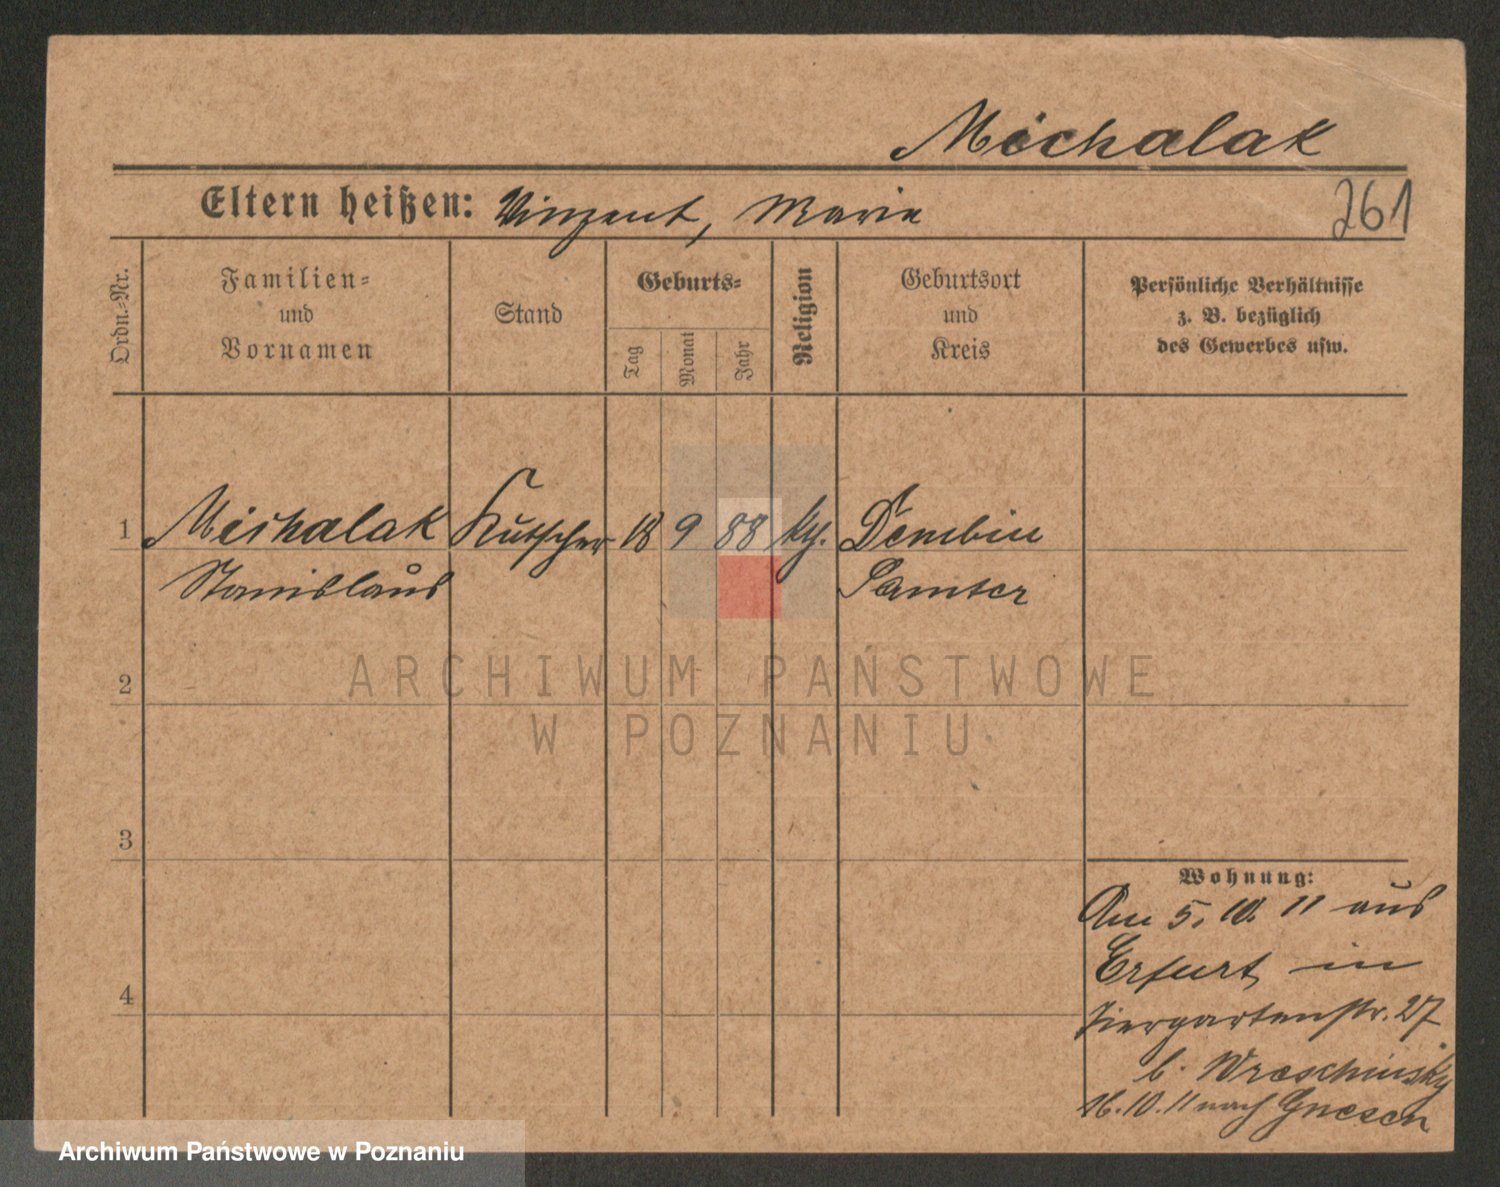 Michalak
Eltern heißen: Vinzent, Marie
261
Ordn.-Nr.
Familien-
und
Vornamen
Stand
Geburts-
Tag
Monat
Jahr
Religion
Geburtsort
und
Kreis
Persönliche Verhältnisse
z. B. bezüglich
des Gewerbes usw.
1 Michalak Kutscher 18 9 88 Dembin
Stanislaus Samter
ARCHIWUM PAŃSTWOWE
W POZNANIU
2
3
4
Wohnung:
Am 5. 10. 11 aus
Erfurt in
Tiergartenstr. 27
b. Wreschinsky
16.10.11 nach Gnesen
Archiwum Państwowe w Poznaniu